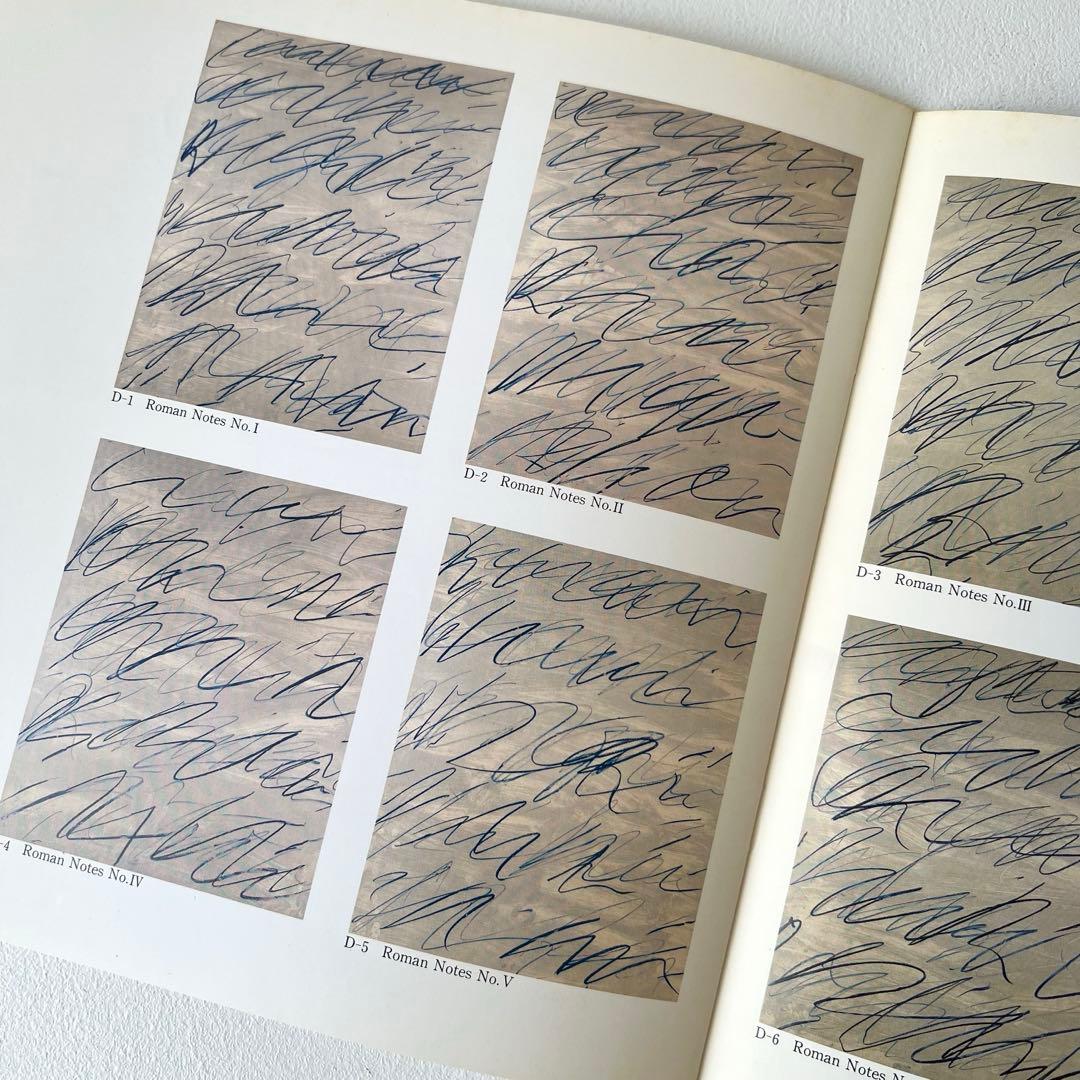 D-1 Roman Notes No.I
D-2 Roman Notes No.II
D-3 Roman Notes No.III
-4 Roman Notes No.IV
D-5 Roman Notes No.V
D-6 Roman Notes